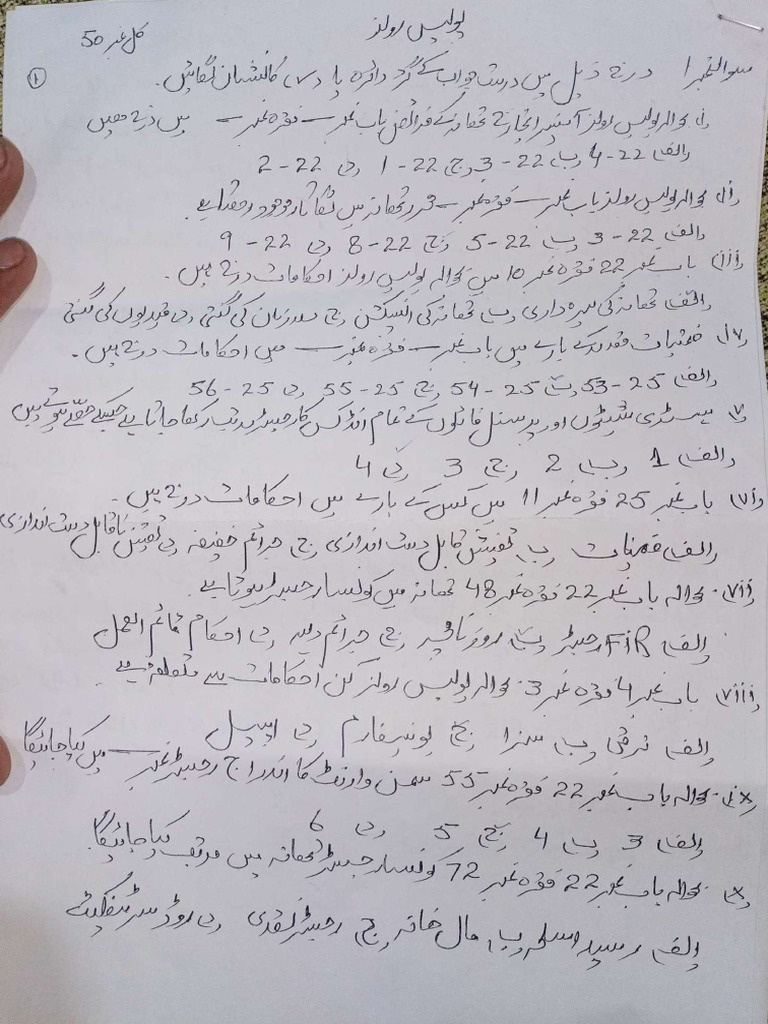 پولیس رولز
کل نمبر 50
①
سوال نمبر 1 درج ذیل میں درست جواب کے گرد دائرہ یا درست کا نشان لگائیں۔
(i) بحوالہ پولیس رولز آفیسر انچارج تھانہ کے فرائض باب نمبر — فقرہ نمبر — میں درج ہیں
(الف) 22-4 (ب) 22-3 (ج) 22-1 (د) 22-2
(ii) بحوالہ پولیس رولز باب نمبر — فقرہ نمبر — محرر تھانہ میں لگاتار موجود رہتا ہے۔
(الف) 22-3 (ب) 22-5 (ج) 22-8 (د) 22-9
(iii) باب نمبر 22 فقرہ نمبر 10 میں بحوالہ پولیس رولز احکامات درج ہیں۔
(الف) تھانہ کی پہرہ داری (ب) تھانہ کی انسپکشن (ج) ملازمان کی گنتی (د) قیدیوں کی گنتی
(iv) ضمنیات مقدمہ کے بارے میں باب نمبر — فقرہ نمبر — میں احکامات درج ہیں۔
(الف) 25-53 (ب) 25-54 (ج) 25-55 (د) 25-56
(v) ہسٹری شیٹوں اور پرسنل فائلوں کے تمام انڈکس کا رجسٹر مرتب رکھا جاتا ہے جسکے حصے ہوتے ہیں
(الف) 1 (ب) 2 (ج) 3 (د) 4
(vi) باب نمبر 25 فقرہ نمبر 11 میں کس کے بارے میں احکامات درج ہیں۔
(الف) ضمنیات (ب) تفتیش قابل دست اندازی (ج) جرائم خفیفہ (د) تفتیش ناقابل دست اندازی
(vii) بحوالہ باب نمبر 22 فقرہ نمبر 48 تھانہ میں کونسا رجسٹر ہوتا ہے۔
(الف) FIR رجسٹر (ب) روزنامچہ (ج) جرائم دیہہ (د) احکام قائم العمل
(viii) باب نمبر 4 فقرہ نمبر 3 بحوالہ پولیس رولز کن احکامات سے متعلقہ ہے۔
(الف) ترقی (ب) سزا (ج) یونیفارم (د) اپیل
(ix) بحوالہ باب نمبر 22 فقرہ نمبر 55 سمن وارنٹ کا اندراج رجسٹر نمبر — میں کیا جائیگا
(الف) 3 (ب) 4 (ج) 5 (د) 6
(x) بحوالہ باب نمبر 22 فقرہ نمبر 72 کونسا رجسٹر تھانہ میں مرتب کیا جائیگا
(الف) رسید اسلحہ (ب) مال خانہ (ج) رجسٹر نقدی (د) روڈ سرٹیفکیٹ